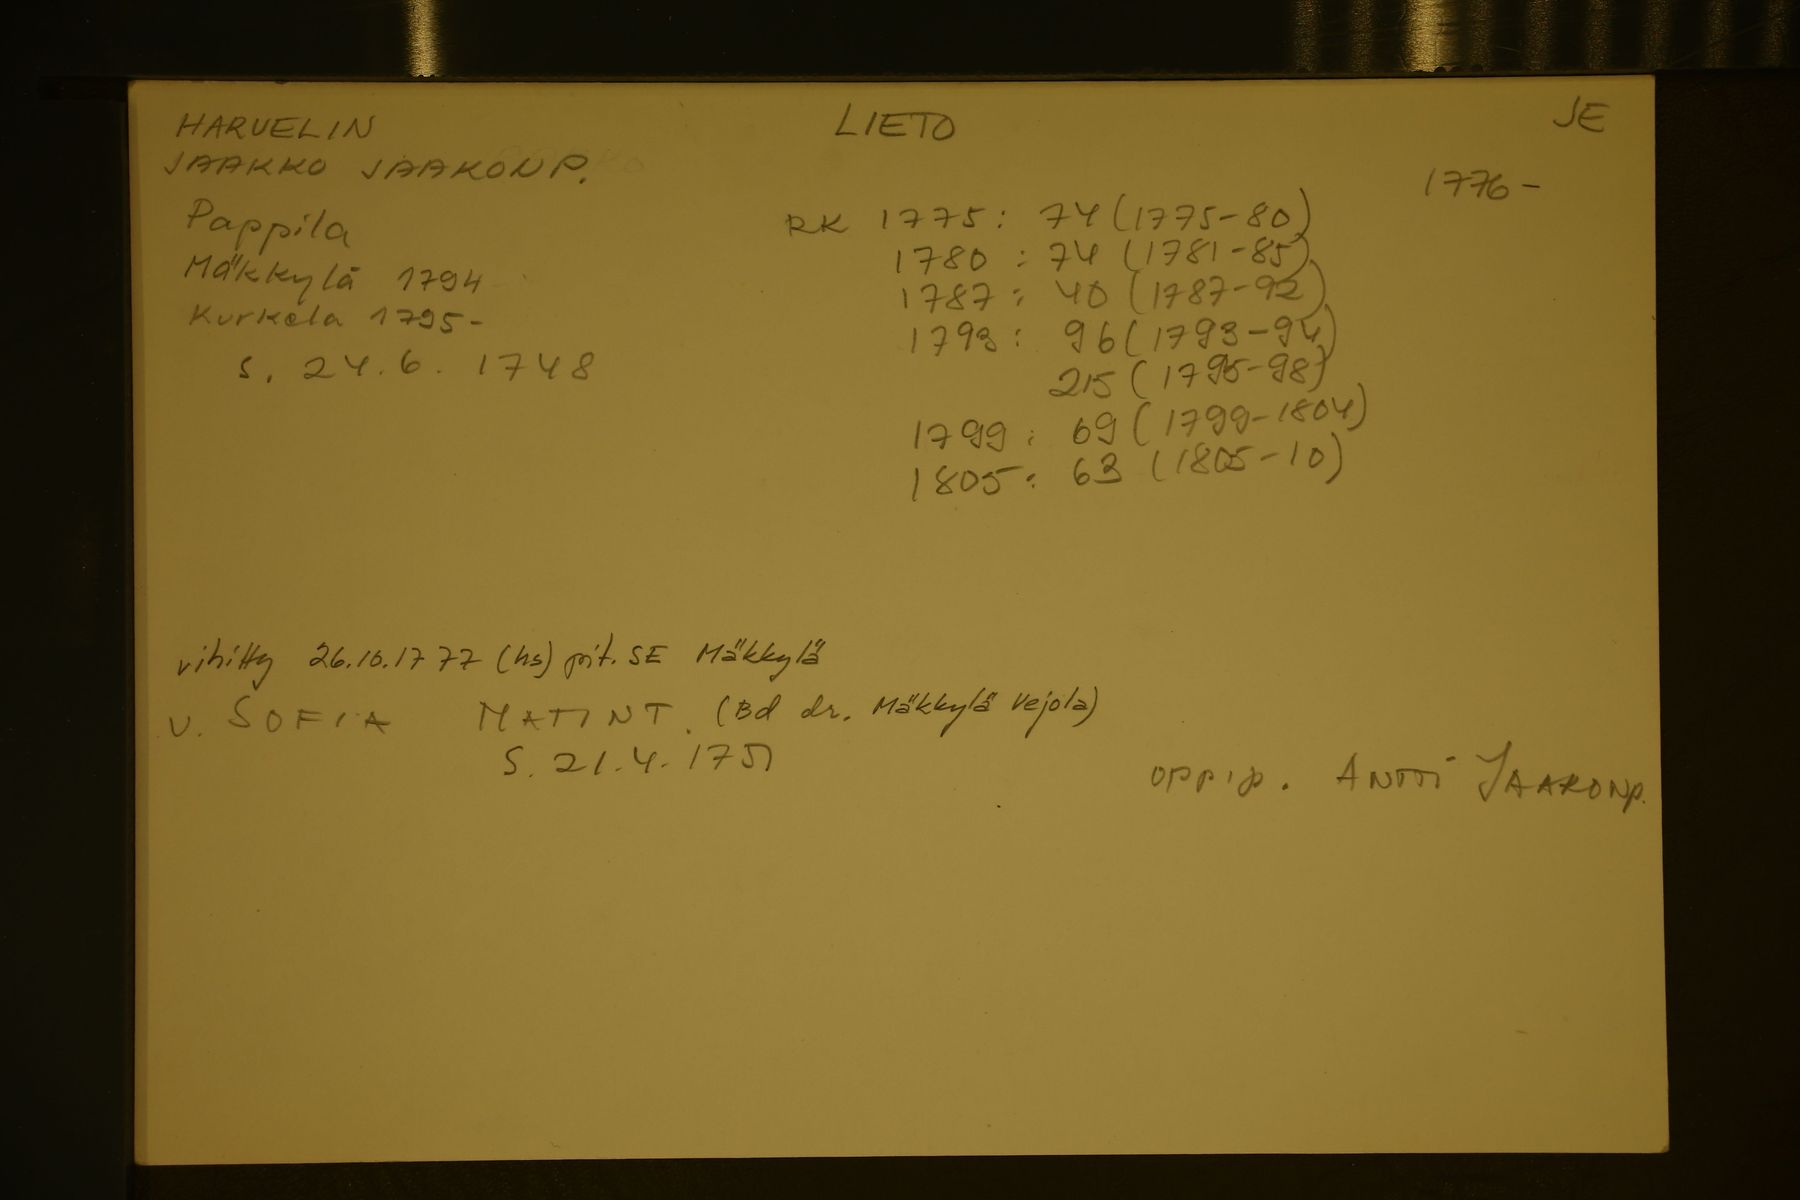 HARVELIN
JAAKKO JAAKONP.
Pappila
Mäkkylä 1794
Kurkela 1795-
s. 24.6. 1748
LIETO
JE
1776-
RK 1775: 74 (1775-80)
1780: 74 (1781-85)
1787: 40 (1787-92)
1793: 96 (1793-94)
215 (1795-98)
1799: 69 (1799-1804)
1805: 63 (1805-10)
vihitty 26.10.1777 (hs) pit. SE Mäkkylä
v. SOFIA MATINT. (Bd dr. Mäkkylä Vejola)
S. 21.4.1751
oppip. ANTTI JAAKONP.